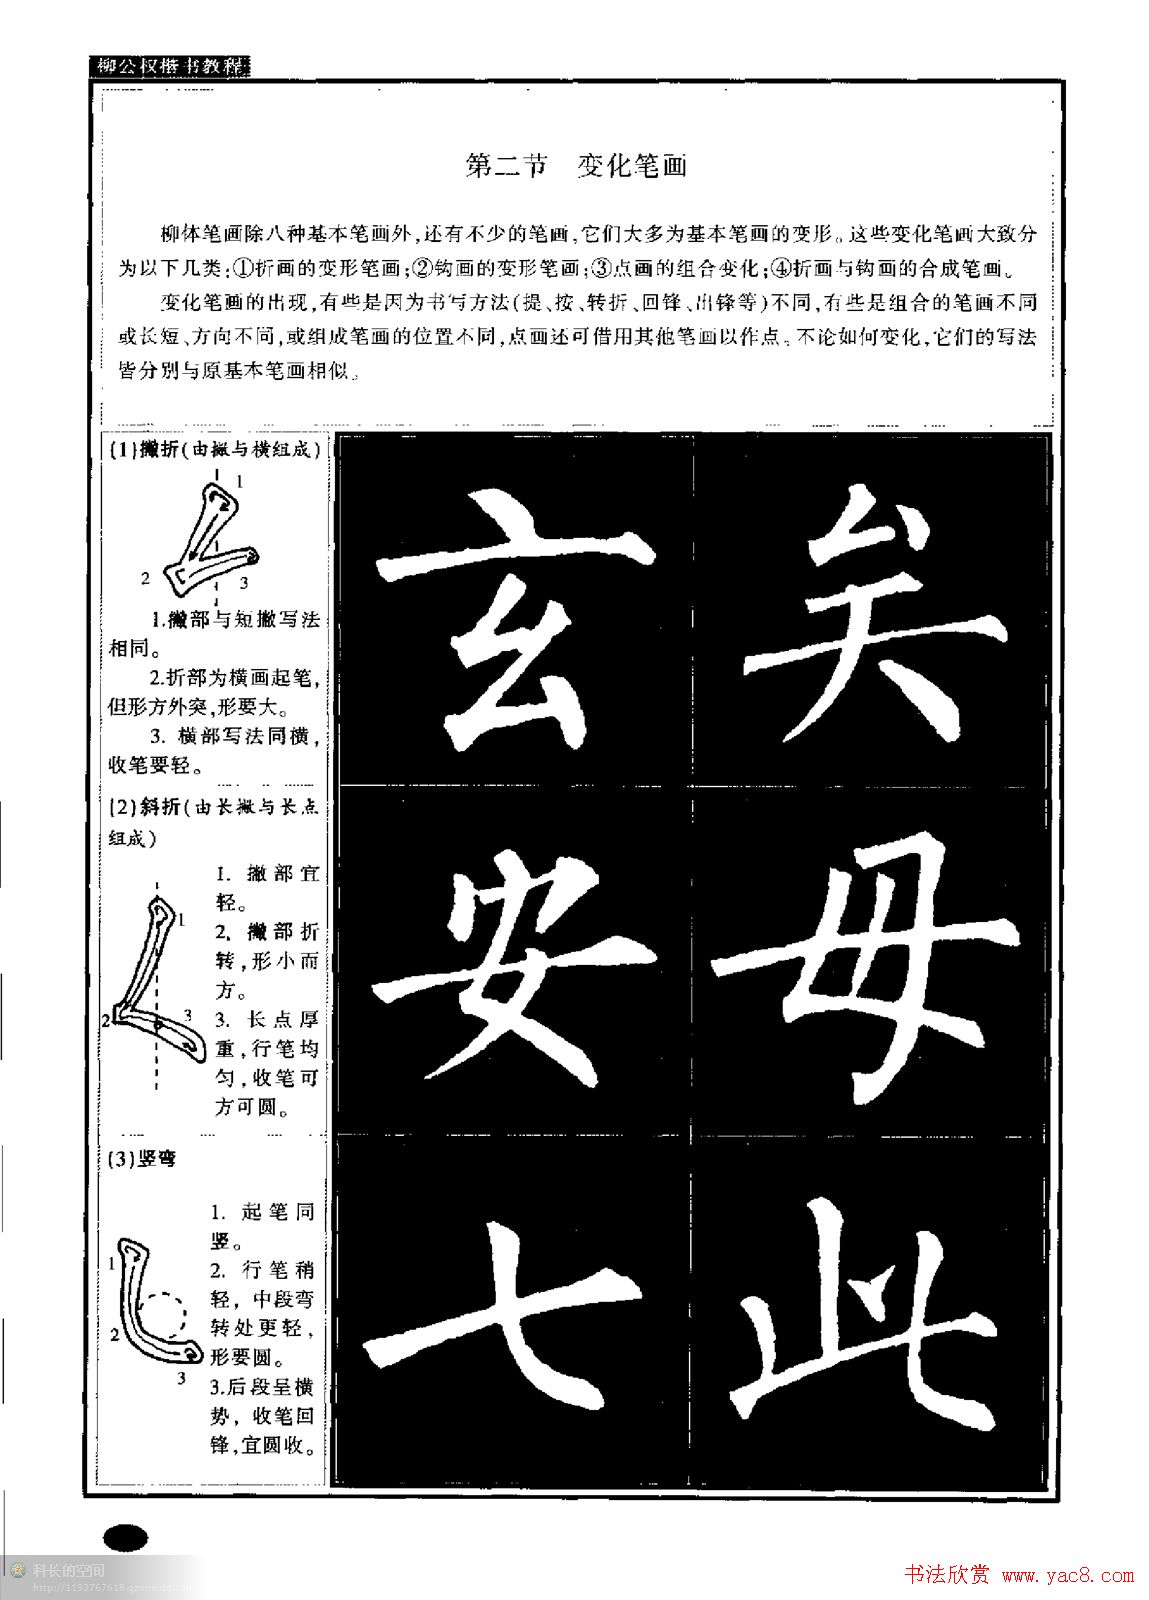 柳公权楷书教程
第二节 变化笔画
柳体笔画除八种基本笔画外,还有不少的笔画,它们大多为基本笔画的变形。这些变化笔画大致分
为以下几类:①折画的变形笔画;②钩画的变形笔画;③点画的组合变化;④折画与钩画的合成笔画。
变化笔画的出现,有些是因为书写方法(提、按、转折、回锋、出锋等)不同,有些是组合的笔画不同
或长短、方向不同,或组成笔画的位置不同,点画还可借用其他笔画以作点。不论如何变化,它们的写法
皆分别与原基本笔画相似。
(1)撇折(由撇与横组成)
1
2
3
1.撇部与短撇写法
相同。
2.折部为横画起笔,
但形方外突,形要大。
3. 横部写法同横,
收笔要轻。
玄 矣
(2)斜折(由长撇与长点
组成)
1
2
3
1. 撇部宜
轻。
2. 撇部折
转,形小而
方。
3. 长点厚
重,行笔均
匀,收笔可
方可圆。
安 毋
(3)竖弯
1
2
3
1. 起笔同
竖。
2. 行笔稍
轻, 中段弯
转处更轻,
形要圆。
3.后段呈横
势, 收笔回
锋,宜圆收。
七 此
科长的空间
http://1193767618.qzone.qq.com
书法欣赏 www.yac8.com